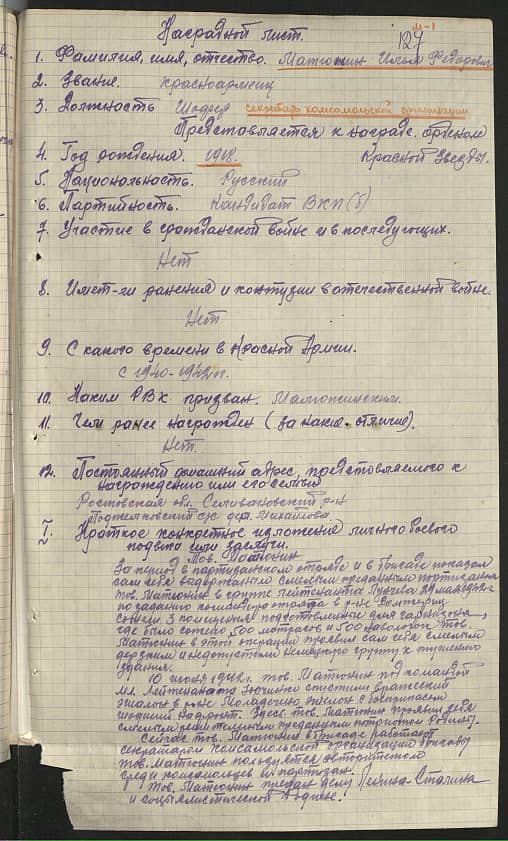 м-1
Наградной лист.
127
1. Фамилия, имя, отчество. Матюшин Илья Федорович
2. Звание. красноармеец
3. Должность секретарь комсомольской организации
Представляется к награде орденом
4. Год рождения. Красной Звезды.
5. Национальность. Русский
6. Партийность. Кандидат ВКП(б)
7. Участие в гражданской войне и в последующих.
Нет
8. Имет-ли ранения и контузии в отечественной войне.
Нет
9. С какого времени в Красной Армии.
с 1940-1942 г.
10. Каким РВК призван.
11. Чем ранее награжден (за какие отличия).
Нет
12. Постоянный домашний адрес, представляемого к
награждению или его семьи
Ростовская обл. Селивановский р-н
с/с дер. Михайлова.
I. Краткое конкретное изложение личного боевого
подвига или заслуги.
Тов. Матюшин
За период в партизанском отряде и в бригаде показал
сам себя выдержанным смелым преданным партизаном
тов. Матюшин в группе лейтенанта
по заданию командира отряда в р-не
сожгли 3 помещения подготовленные для гарнизона,
где было сожжено 500 матрасов и 500 наволочек тов.
Матюшин в этой операции проявил сам себя смелым
дерзким и недопустил немецкую группу к тушению
здания.
10 июня тов. Матюшин под командой
мл. Лейтенанта спустили вражеский
эшелон в р-не Молодечно эшелон с боеприпасом
шедший на фронт. Здесь тов. Матюшин проявил себя
смелым решительным преданным патриотом Родины.
Сейчас тов. Матюшин в бригаде работает
секретарем комсомольской организации бригады
тов. Матюшин пользуется авторитетом
среди комсомольцев и партизан.
Тов. Матюшин предан делу Ленина-Сталина
и социалистической Родине.